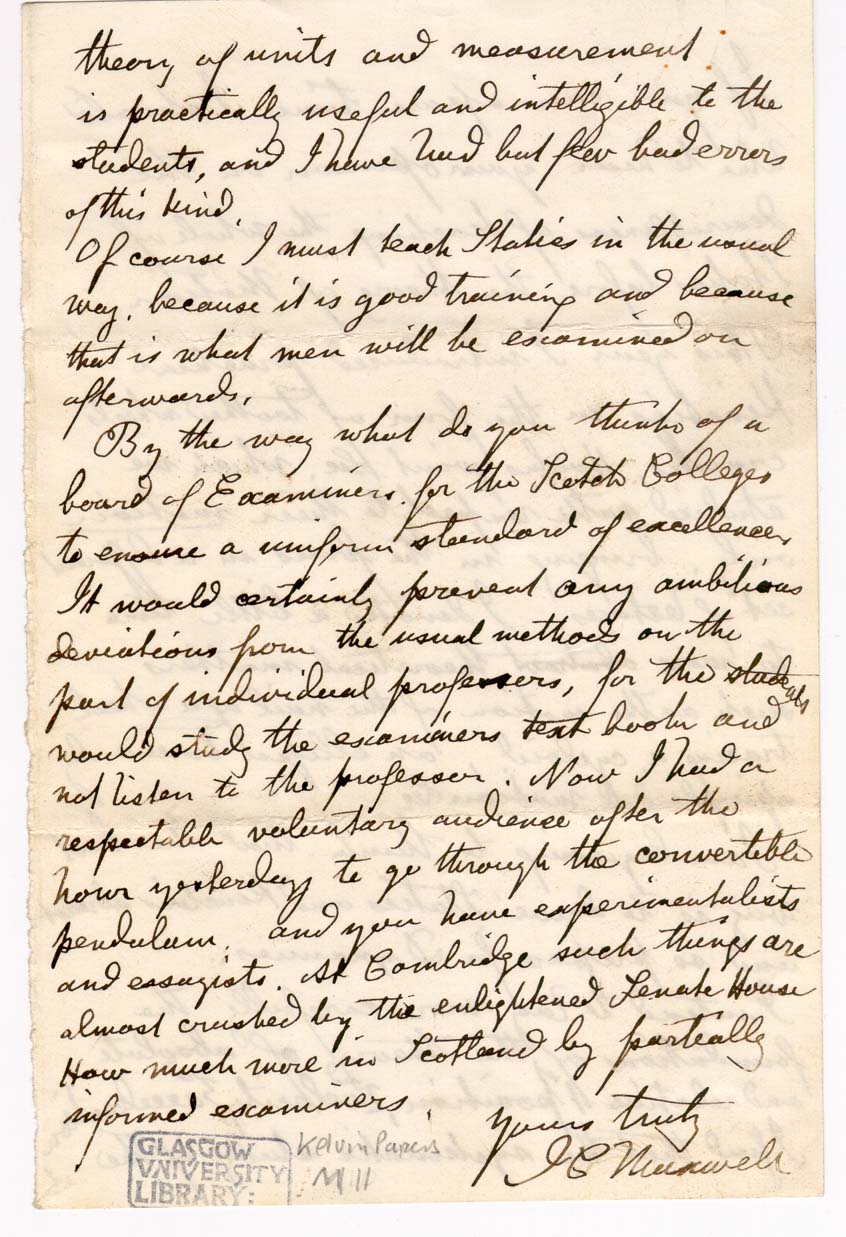 theory of units and measurement
is practically useful and intelligible to the
students, and I have had but few bad errors
of this kind.
Of course I must teach Statics in the usual
way, because it is good training and because
that is what men will be examined on
afterwards.
By the way what do you think of a
board of Examiners for the Scotch Colleges
to ensure a uniform standard of excellence.
It would certainly prevent any ambitious
deviations from the usual methods on the
part of individual professors, for the students
would study the examiners text book and
not listen to the professor. Now I had a
respectable voluntary audience after the
hour yesterday to go through the convertible
pendulum. and you have experimentalists
and essayists. At Cambridge such things are
almost crushed by the enlightened Senate House
How much more in Scotland by partially
informed examiners.
Yours truly
J C Maxwell
GLASGOW
UNIVERSITY
LIBRARY:
Kelvin Papers
M 11